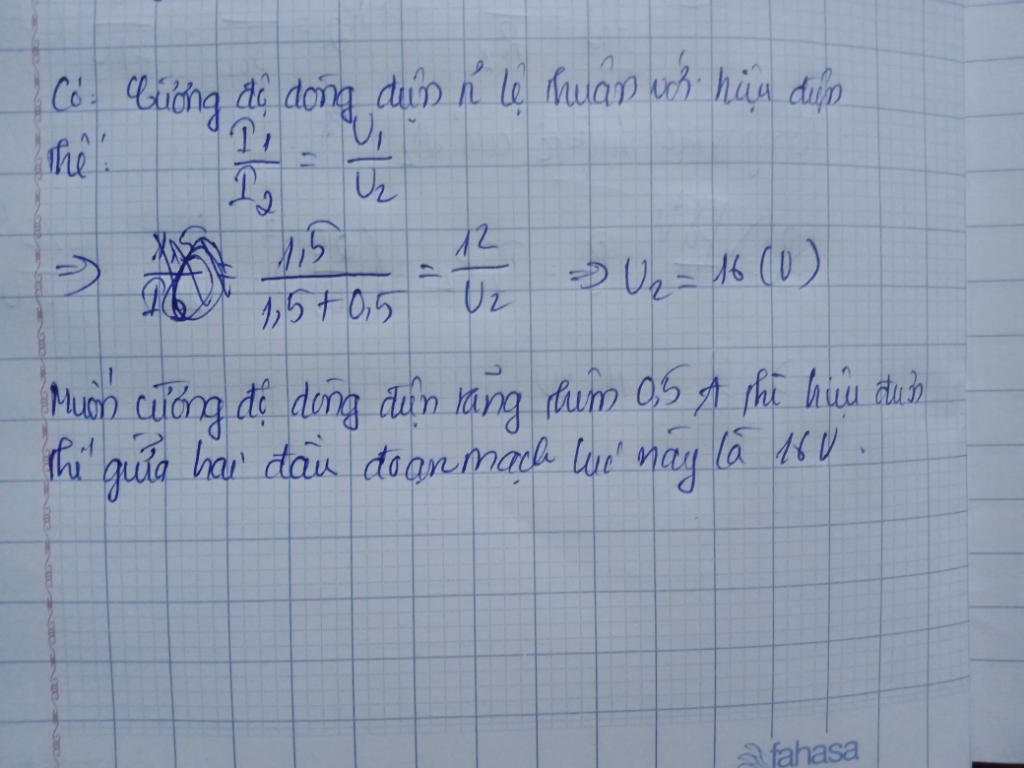 Có: Cường độ dòng điện tỉ lệ thuận với hiệu điện
thế: I₁/I₂ = U₁/U₂
=> 1,5/(1,5+0,5) = 12/U₂ => U₂ = 16 (V)
Muốn cường độ dòng điện tăng thêm 0,5 A thì hiệu điện
thế giữa hai đầu đoạn mạch lúc này là 16V.
fahasa